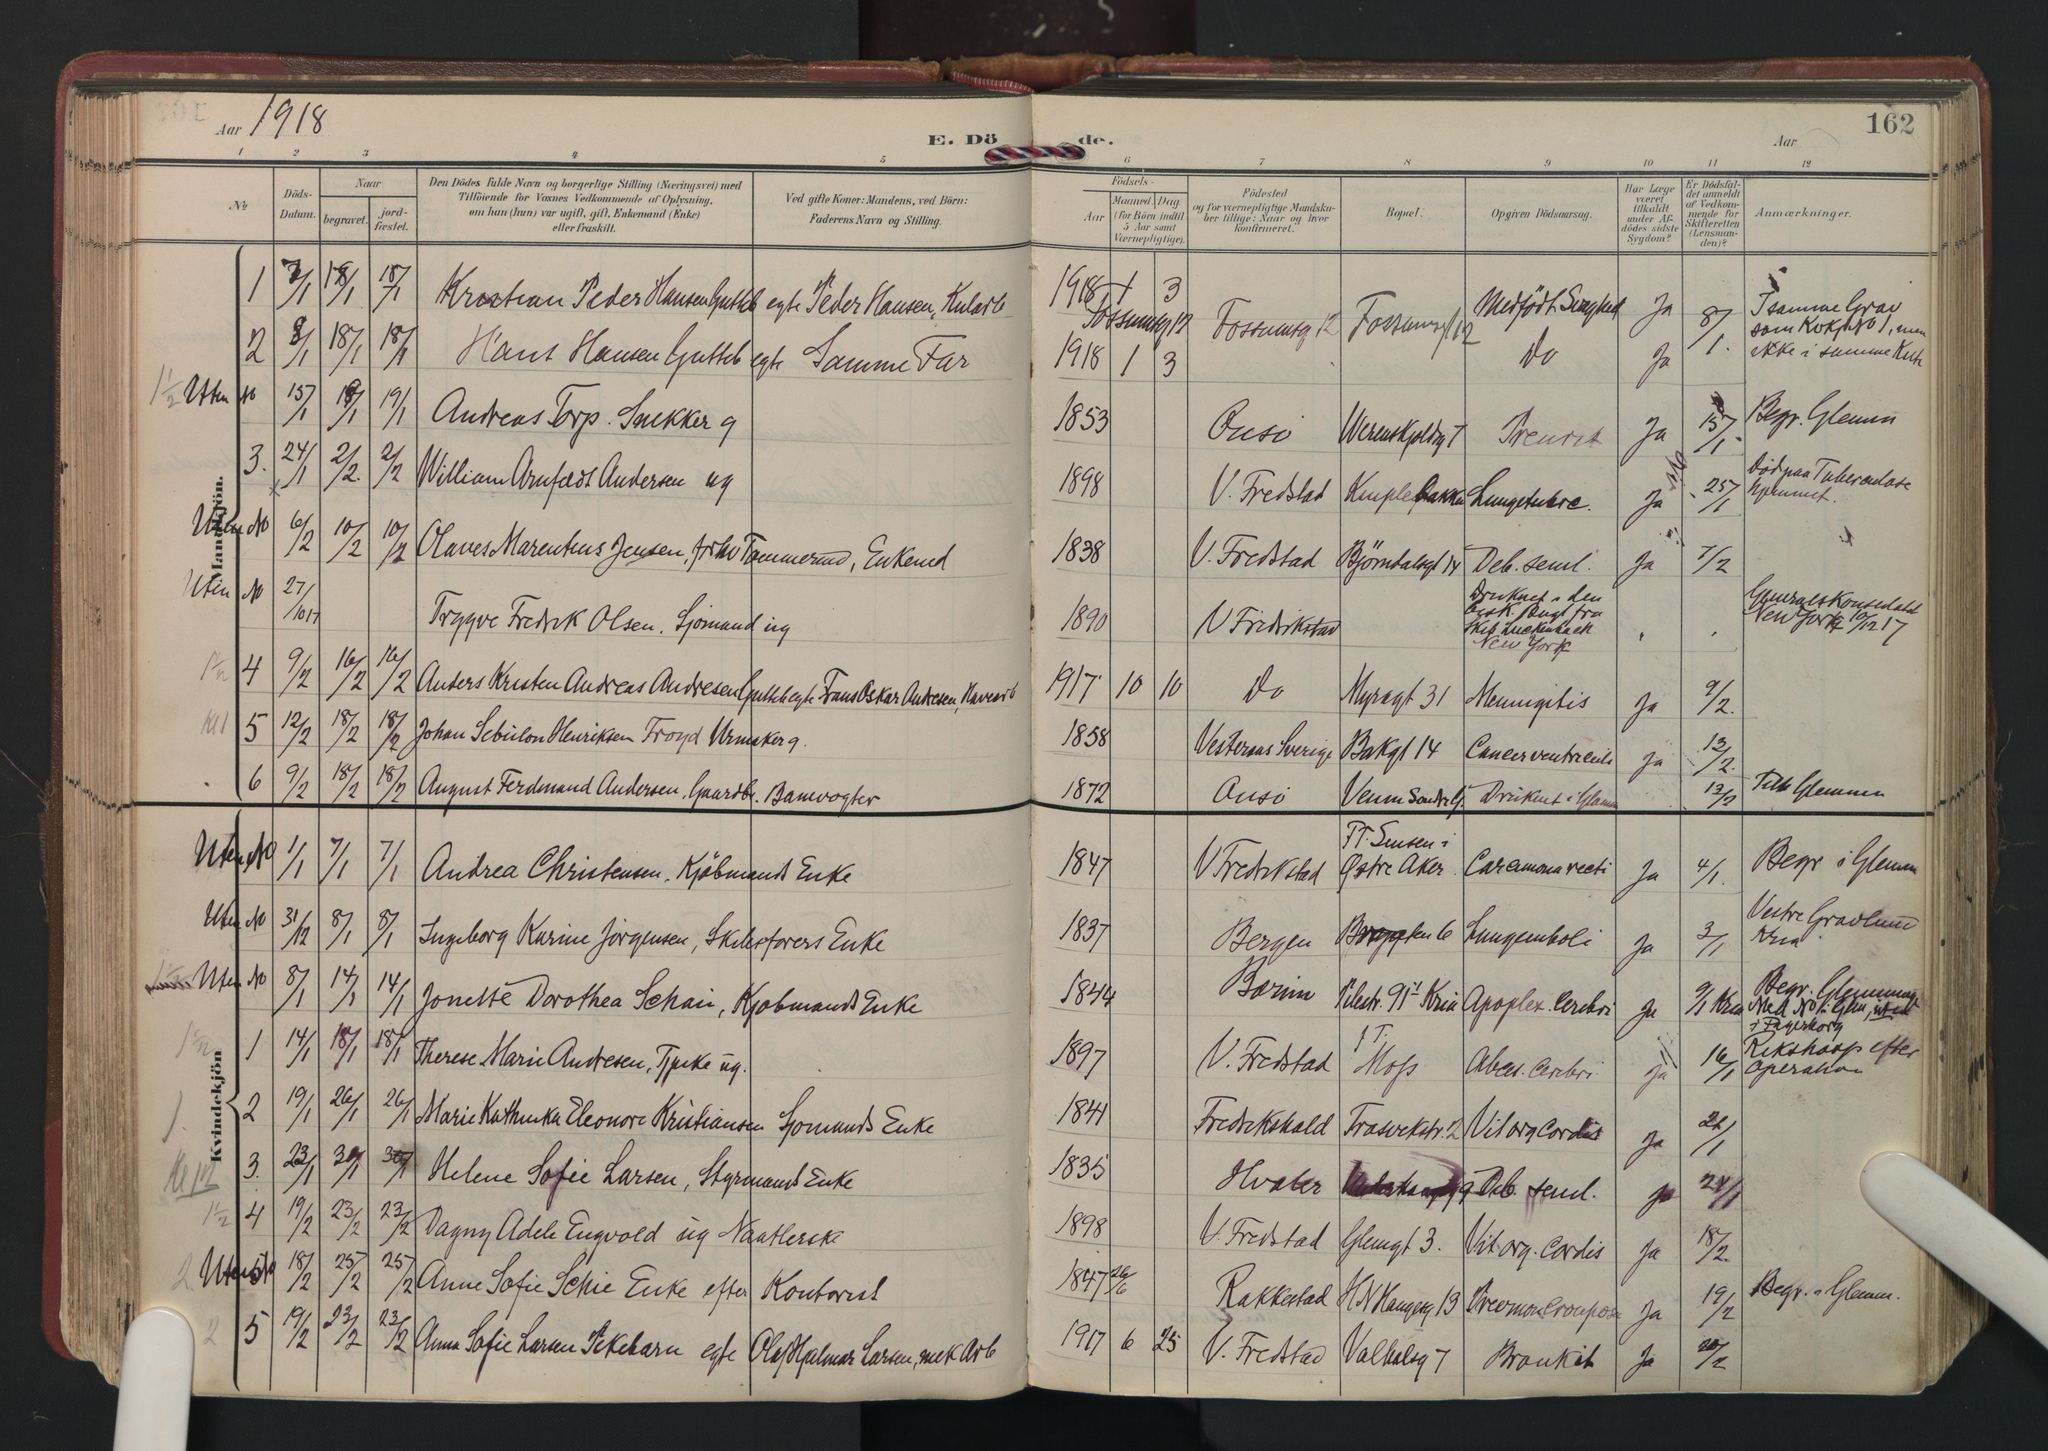 Aar 1918
E. Dö de.
Aar
162
1 2 3 4 5 6 7 8 9 10 11 12
No
Döds-Datum.
Naar
begravet.
jord-fæstet.
Den Dödes fulde Navn og borgerlige Stilling (Næringsvei) med
Tilföiende for Voxnes Vedkommende af Oplysning,
om han (hun) var ugift, gift, Enkemand (Enke)
eller fraskilt.
Ved gifte Koner: Mandens, ved Börn:
Faderens Navn og Stilling.
Födsels-
Aar
Maaned. Dag.
(for Börn indtil
5 Aar samt
Værnepligtige).
Födested
og for værnepligtige Mandsku-
ber tillige: Naar og hvor
konfirmeret.
Bopæl.
Opgiven Dödsaarsag.
Har Læge
været
tilkaldt
under Af-
dödes sidste
Sygdom?
Er Dödsfal-
det anmeldt
af Vedkom-
mende for
Skifteretten
(Lensman-
den)?
Anmærkninger.
Mandkjön.
1 18/1 18/1 Kristian Peder Hansen Gutteb egte Peder Hansen, Kularb 1918 1 3 Fossumsg 12 Fossumsgt 12 Medfödt Svaghed Ja 8/1 I samme Grav
som Kvkj No 1, men
ikke i samme Kiste
2 18/1 18/1 Hans Hansen Gutteb egte Samme Far Fossumsg 12 1918 1 3 Do Ja
1½ Uten No 15/1 19/1 19/1 Andreas Torp. Snekker g 1853 Onsö Werenskjoldsg 7 Ja 15/1 Begr. Glemm
3. 24/1 2/2 2/2 William Arnfeldt Andersen ug 1898 V. Fredstad Lungetuberc. Ja 25/1 Död paa Tuberculose
hjemmet.
Uten No 6/2 10/2 10/2 Olaves Marentius Jensen, Tommerund, Enkemd 1838 V. Fredstad Björndalsgt 14 Deb. senil. Ja 7/2
Uten No 27/10 17 Trygve Fredrik Olsen. Sjömand ug 1890 V Fredrikstad Druknet i den
Bisk. Bugt fra
Skib Luckenback
New York Generalskonsulatet
New York 10/12 17
1½ 4 9/2 16/2 16/2 Anders Kristen Andreas Andresen Gutteb egte Frans Oskar Andresen, Havearb 1917 10 10 Do Myragt 31 Menigitis Ja 9/2.
5 12/2 18/2 18/2 Johan Sebulon Henriksen Froyd Urmaker g. 1858 Vesteraas Sverige Bakgt 14 Cancer ventriculi Ja 13/2.
6 9/2 18/2 18/2 August Ferdinand Andersen, Gaardbr. Banevogter 1872 Onsö Druknet i Glommen 13/2 Glemmen
Kvindekjön
Uten No 1/1 7/1 7/1 Andrea Christensen, Kjöbmands Enke 1847 V Fredrikstad Östre Aker Ja 4/1. Begr i Glemm
Uten No 31/12 8/1 8/1 Ingeborg Karine Jörgensen, Skibsförers Enke 1837 Bergen Bryggten 6 Lungemboli Ja 3/1 Vestre Gravlund
Kria
Uten No 8/1 14/1 14/1 Jonette Dorothea Schau, Kjöbmands Enke 1844 Bærum Pilestr. 91 Kria Apoplex. Cerebri Ja 9/1 Kria Begr. Glemmen
i Fagerborg
1½ 1 14/1 18/1 18/1 Therese Marie Andresen, Tjpike ug. 1897 V. Fredstad Moss Absces. Cerebri Ja 16/1 Rikshosp efter
operation
1. 2 19/1 26/1 26/1 Marie Kathinka Eleonore Kristiansen Sjömands Enke 1841 Fredrikshald Trosvikstr. 2 Vit org Cordis Ja 21/1
Kl 12 3. 23/1 30/1 30/1 Helene Sofie Larsen, Styrmands Enke 1835 Hvaler Deb. senil. Ja 24/1
1½ 4 19/2 23/2 23/2 Dagny Adele Engvold ug 1898 V. Fredstad Glemgt 3. Vit org. Cordis Ja 18/2
2 Uten No 18/2 25/2 25/2 Anne Sofie Schie Enke efter Kontorist 1847 26/6 Rakkestad H N Haugesg 13 Ja 19/2 Begr. i Glemm.
2 5 19/2 23/2 23/2 Anna Sofie Larsen Pikebarn egte Olaf Hjalmar Larsen, mek Arb 1917 6 25 V. Fredstad Valhalsg 7 Bronkit Ja 20/2